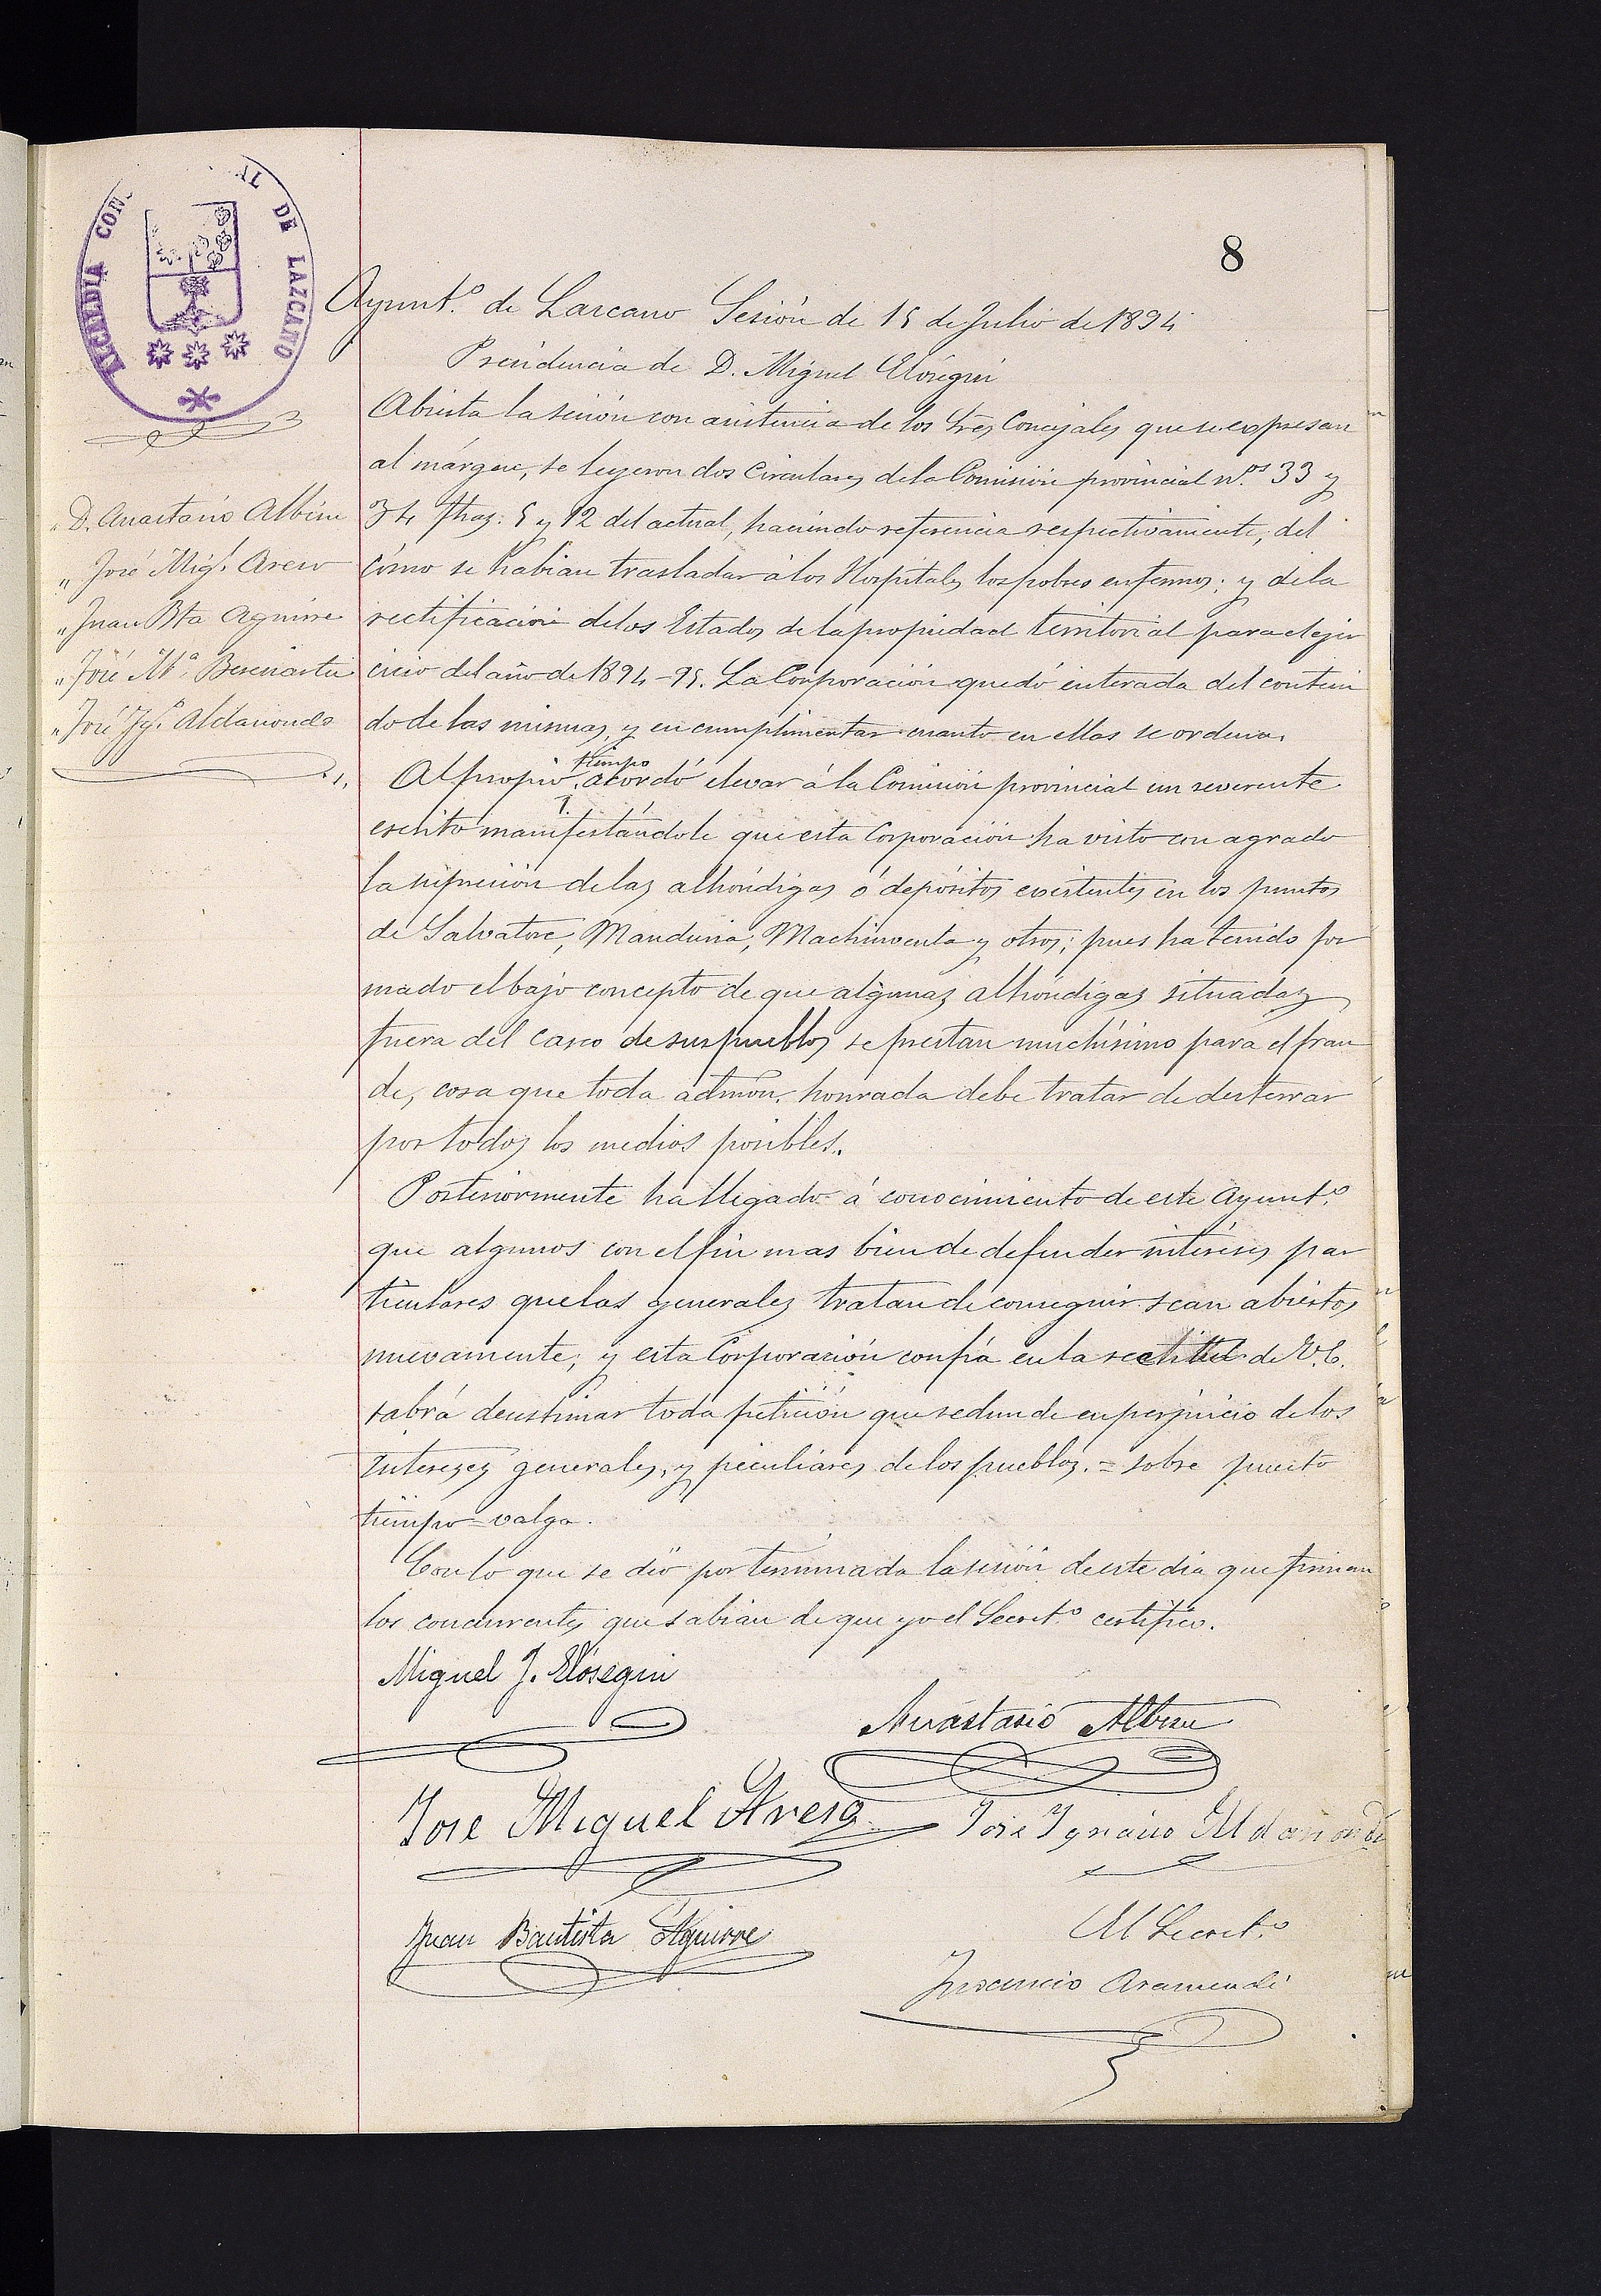 ALCALDIA CONS AL DE LAZCANO
8
Ayunt.º de Lazcano Sesión de 15 de Julio de 1894
Presidencia de D. Miguel Elósegui
D. Anastasio Albisu
" José Mig.l Areso
" Juan Bta Aguirre
" José M.ª Bereciartu
" José Ig.º Aldanondo
Abierta la sesión con asistencia de los Sres Concejales que se expresan
al márgen, se leyeron dos Circulares de la Comisión provincial n.os 33 y
34 fhas: 5 y 12 del actual, haciendo referencia respectivamente, del
cómo se habían trasladar á los Hospitales los pobres enfermos; y de la
rectificación de los Estados de la propiedad territorial para el ejer
cicio del año de 1894-95. La Corporación quedó enterada del conteni
do de las mismas, y en cumplimentar cuanto en ellas se ordena.
1. Al propio tiempo acordó elevar á la Comisión provincial un reverente
escrito manifestándole que esta Corporación ha visto con agrado
la supresión de las alhóndigas ó depósitos existentes en los puntos
de Salvatore, Manduria, Machinventa y otros; pues ha tenido for
mado el bajo concepto de que algunas alhóndigas situadas
fuera del casco de sus pueblos se prestan muchísimo para el frau
de, cosa que toda admón. honrada debe tratar de desterrar
por todos los medios posibles.
Posteriormente ha llegado á conocimiento de este Ayunt.º
que algunos con el fin mas bien de defender intereses par
ticulares que las generales tratan de conseguir sean abiertos
nuevamente; y esta Corporación confía en la rectitud de V.E.
sabrá desestimar toda petición que redunde en perjuicio de los
intereses generales, y peculiares de los pueblos. = sobre puesto
tiempo = valga.
Con lo que se dió por terminada la sesión de este dia que firman
los concurrentes que sabían de que yo el Secret.º certifico.
Miguel J. Elósegui
Anastasio Albisu
José Miguel Areso
José Ignacio Aldanondo
Juan Bautista Aguirre
El Secret.º
Inocencio Aramendi